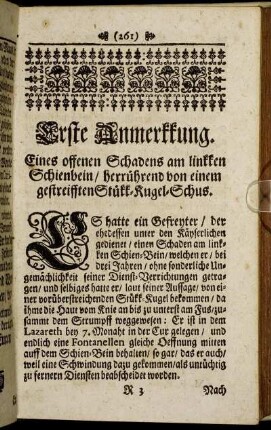 (261)
Erste Anmerkkung.
Eines offenen Schadens am linkken
Schienbein / herrührend von einem
gestreifften Stükk-Kugel-Schus.
ES hatte ein Gefreyter / der
ehedessen unter den Käyserlichen
gedienet / einen Schaden am link-
ken Schien-Bein / welchen er / bei
drei Jahren / ohne sonderliche Un-
gemächlichkeit seiner Dienst-Verrichtungen getra-
gen / und selbiges hatte er / laut seiner Aussage / von ei-
ner vorüberstreichenden Stükk-Kugel bekommen / da
ihme die Haut vom Knie an bis zu unterst am Fus / zu-
samt dem Strumpff weggewesen: Er ist in dem
Lazareth bey 7. Monaht in der Cur gelegen / und
endlich eine Fontanellen gleiche Oeffnung mitten
auff dem Schien-Bein behalten / so gar / das er auch /
weil eine Schwindung dazu gekommen / als untüchtig
zu fernern Diensten beabscheidet worden.
R 3 Nach